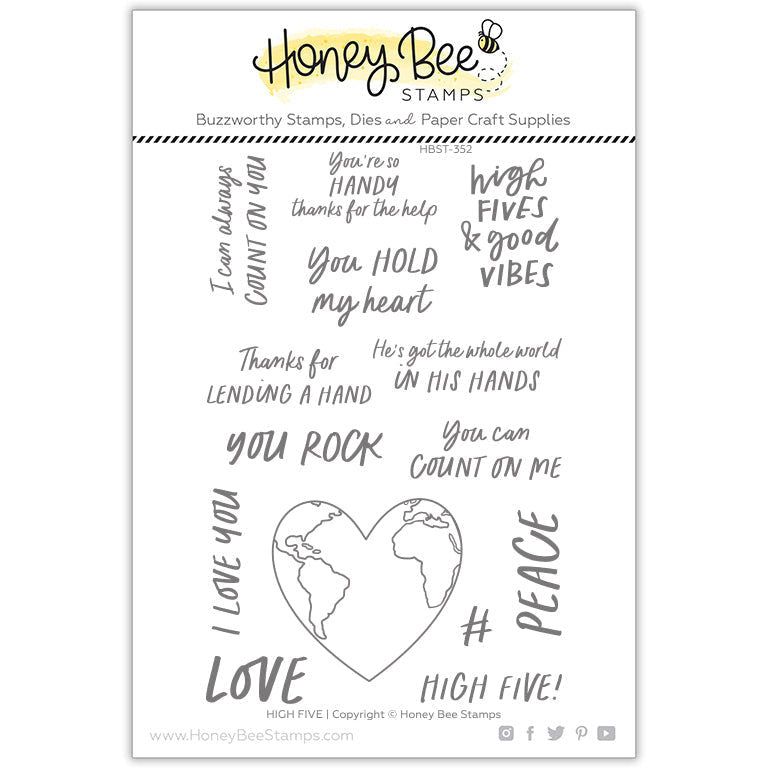 Honey Bee
STAMPS
Buzzworthy Stamps, Dies and Paper Craft Supplies
HBST-352
I can always
COUNT ON YOU
You're so
HANDY
thanks for the help
high
FIVES
& good
VIBES
You HOLD
my heart
Thanks for
LENDING A HAND
He's got the whole world
IN HIS HANDS
YOU ROCK
You can
COUNT ON ME
I LOVE YOU
PEACE
#
LOVE
HIGH FIVE!
HIGH FIVE | Copyright © Honey Bee Stamps
www.HoneyBeeStamps.com